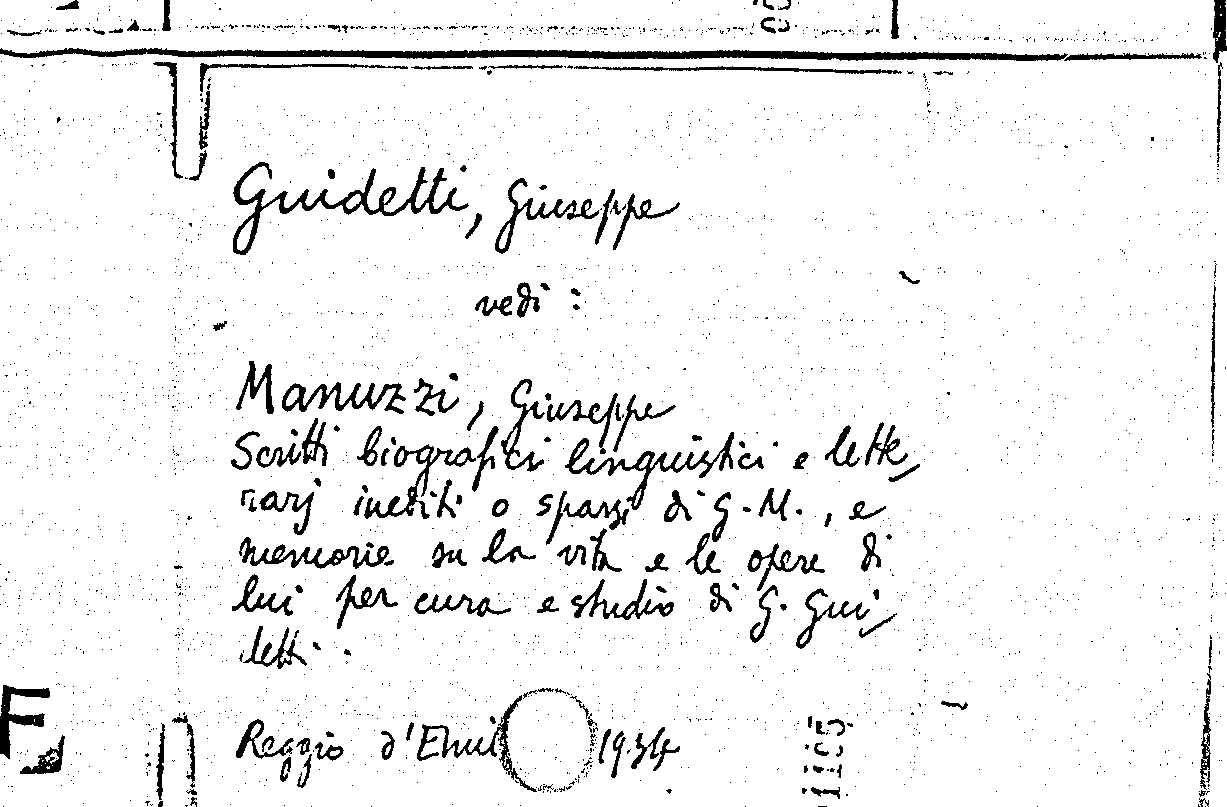 Guidetti, Giuseppe
vedi:
Manuzzi, Giuseppe
Scritti biografici linguistici e lette
rarj inediti o sparsi di G. M., e
memorie su la vita e le opere di
lui per cura e studio di G. Gui
detti.
Reggio d'Emil 1934
F